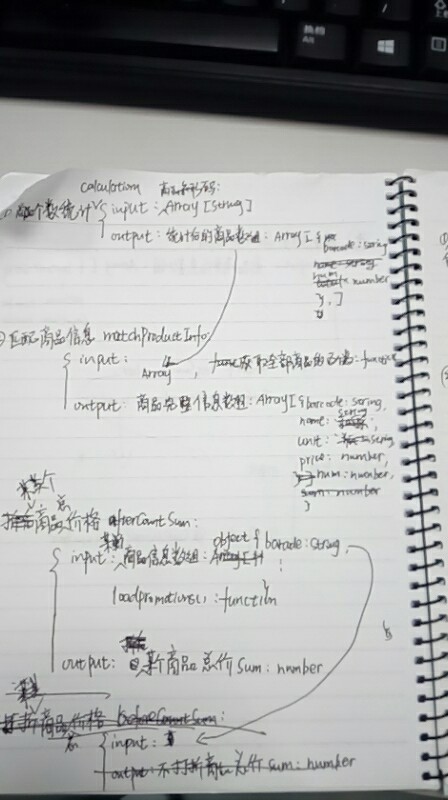 换档
Alt
calculation 商品条形码:
个数统计 input: Array[String]
output: 统计后的商品数组: Array[{
barcode: string
name: string
num: number
}, ]
②匹配商品信息 matchProductInfo:
input: Array , 获取全部商品的函数: function
output: 商品完整信息数组: Array[{barcode: string,
name: string,
unit: string,
price: number,
num: number,
sum: number
}
某个
打折商品总价格 afterCountSum:
input: 某商品信息数组: object { barcode: string,
loadpromotions(), : function
output: 某商品总价 sum: number
打折商品总价格 beforeCountSum:
input:
output: 不打折商品总价 sum: number